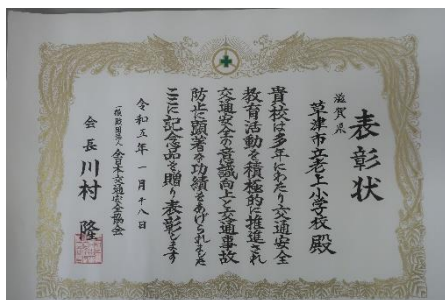 表彰状
滋賀県
草津市立老上小学校 殿
貴校は多年にわたり交通安全
教育活動を積極的に推進され
交通安全の意識向上と交通事故
防止に顕著な功績をあげられました
ここに記念品を贈り表彰します
令和五年一月十八日
一般財団法人全日本交通安全協会
会長 川村 隆